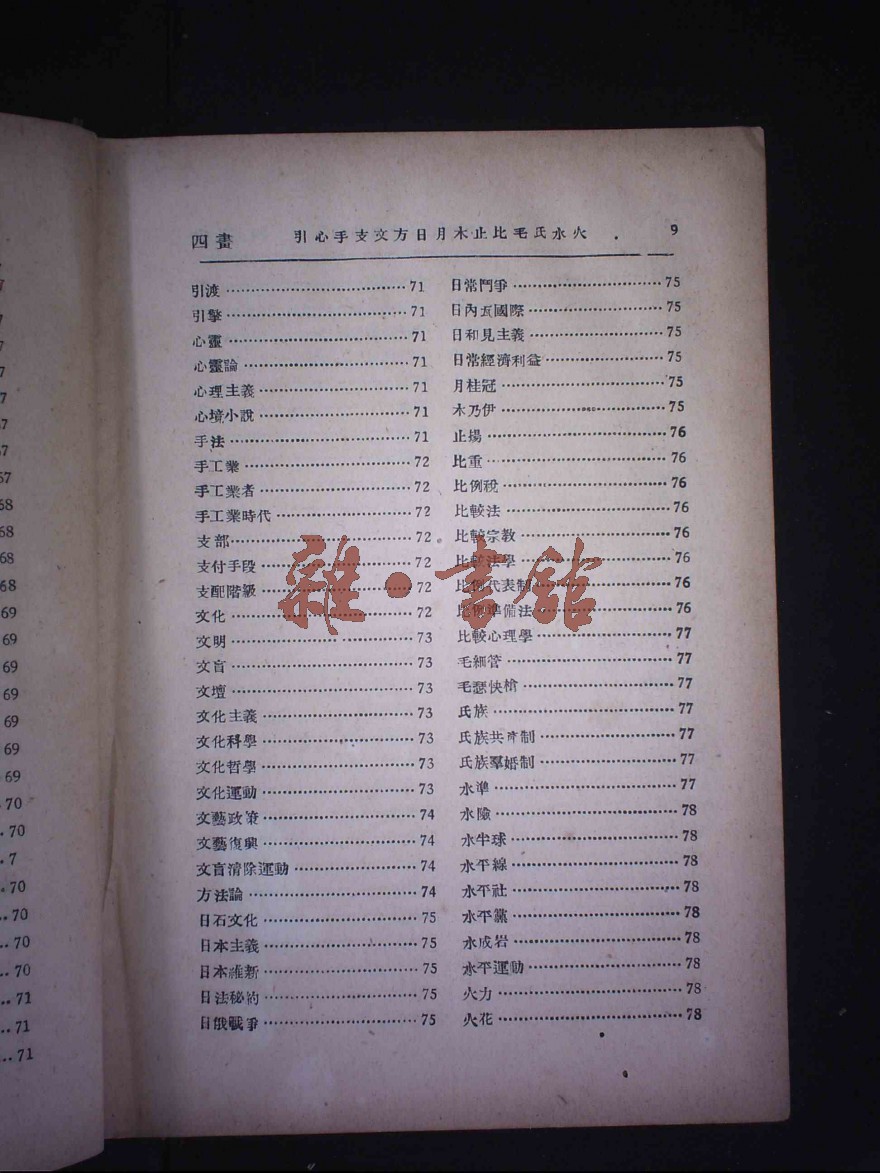 四畫 引心手支文方日月木止比毛氏水火 9
引渡 71
引擎 71
心靈 71
心靈論 71
心理主義 71
心境小說 71
手法 71
手工業 72
手工業者 72
手工業時代 72
支部 72
支付手段 72
支配階級 72
文化 72
文明 73
文盲 73
文壇 73
文化主義 73
文化科學 73
文化哲學 73
文化運動 73
文藝政策 74
文藝復興 74
文盲清除運動 74
方法論 74
日石文化 75
日本主義 75
日本維新 75
日法秘約 75
日俄戰爭 75
日常鬥爭 75
日內瓦國際 75
日和見主義 75
日常經濟利益 75
月桂冠 75
木乃伊 75
止揚 76
比重 76
比例稅 76
比較法 76
比較宗教 76
比較法學 76
比例代表制 76
比例準備法 76
比較心理學 77
毛細管 77
毛瑟快槍 77
氏族 77
氏族共產制 77
氏族羣婚制 77
水準 77
水險 78
水半球 78
水平線 78
水平社 78
水平黨 78
水成岩 78
水平運動 78
火力 78
火花 78
雜·書館
67
68
68
68
68
69
69
69
69
69
69
69
70
70
7
70
70
70
70
71
71
71